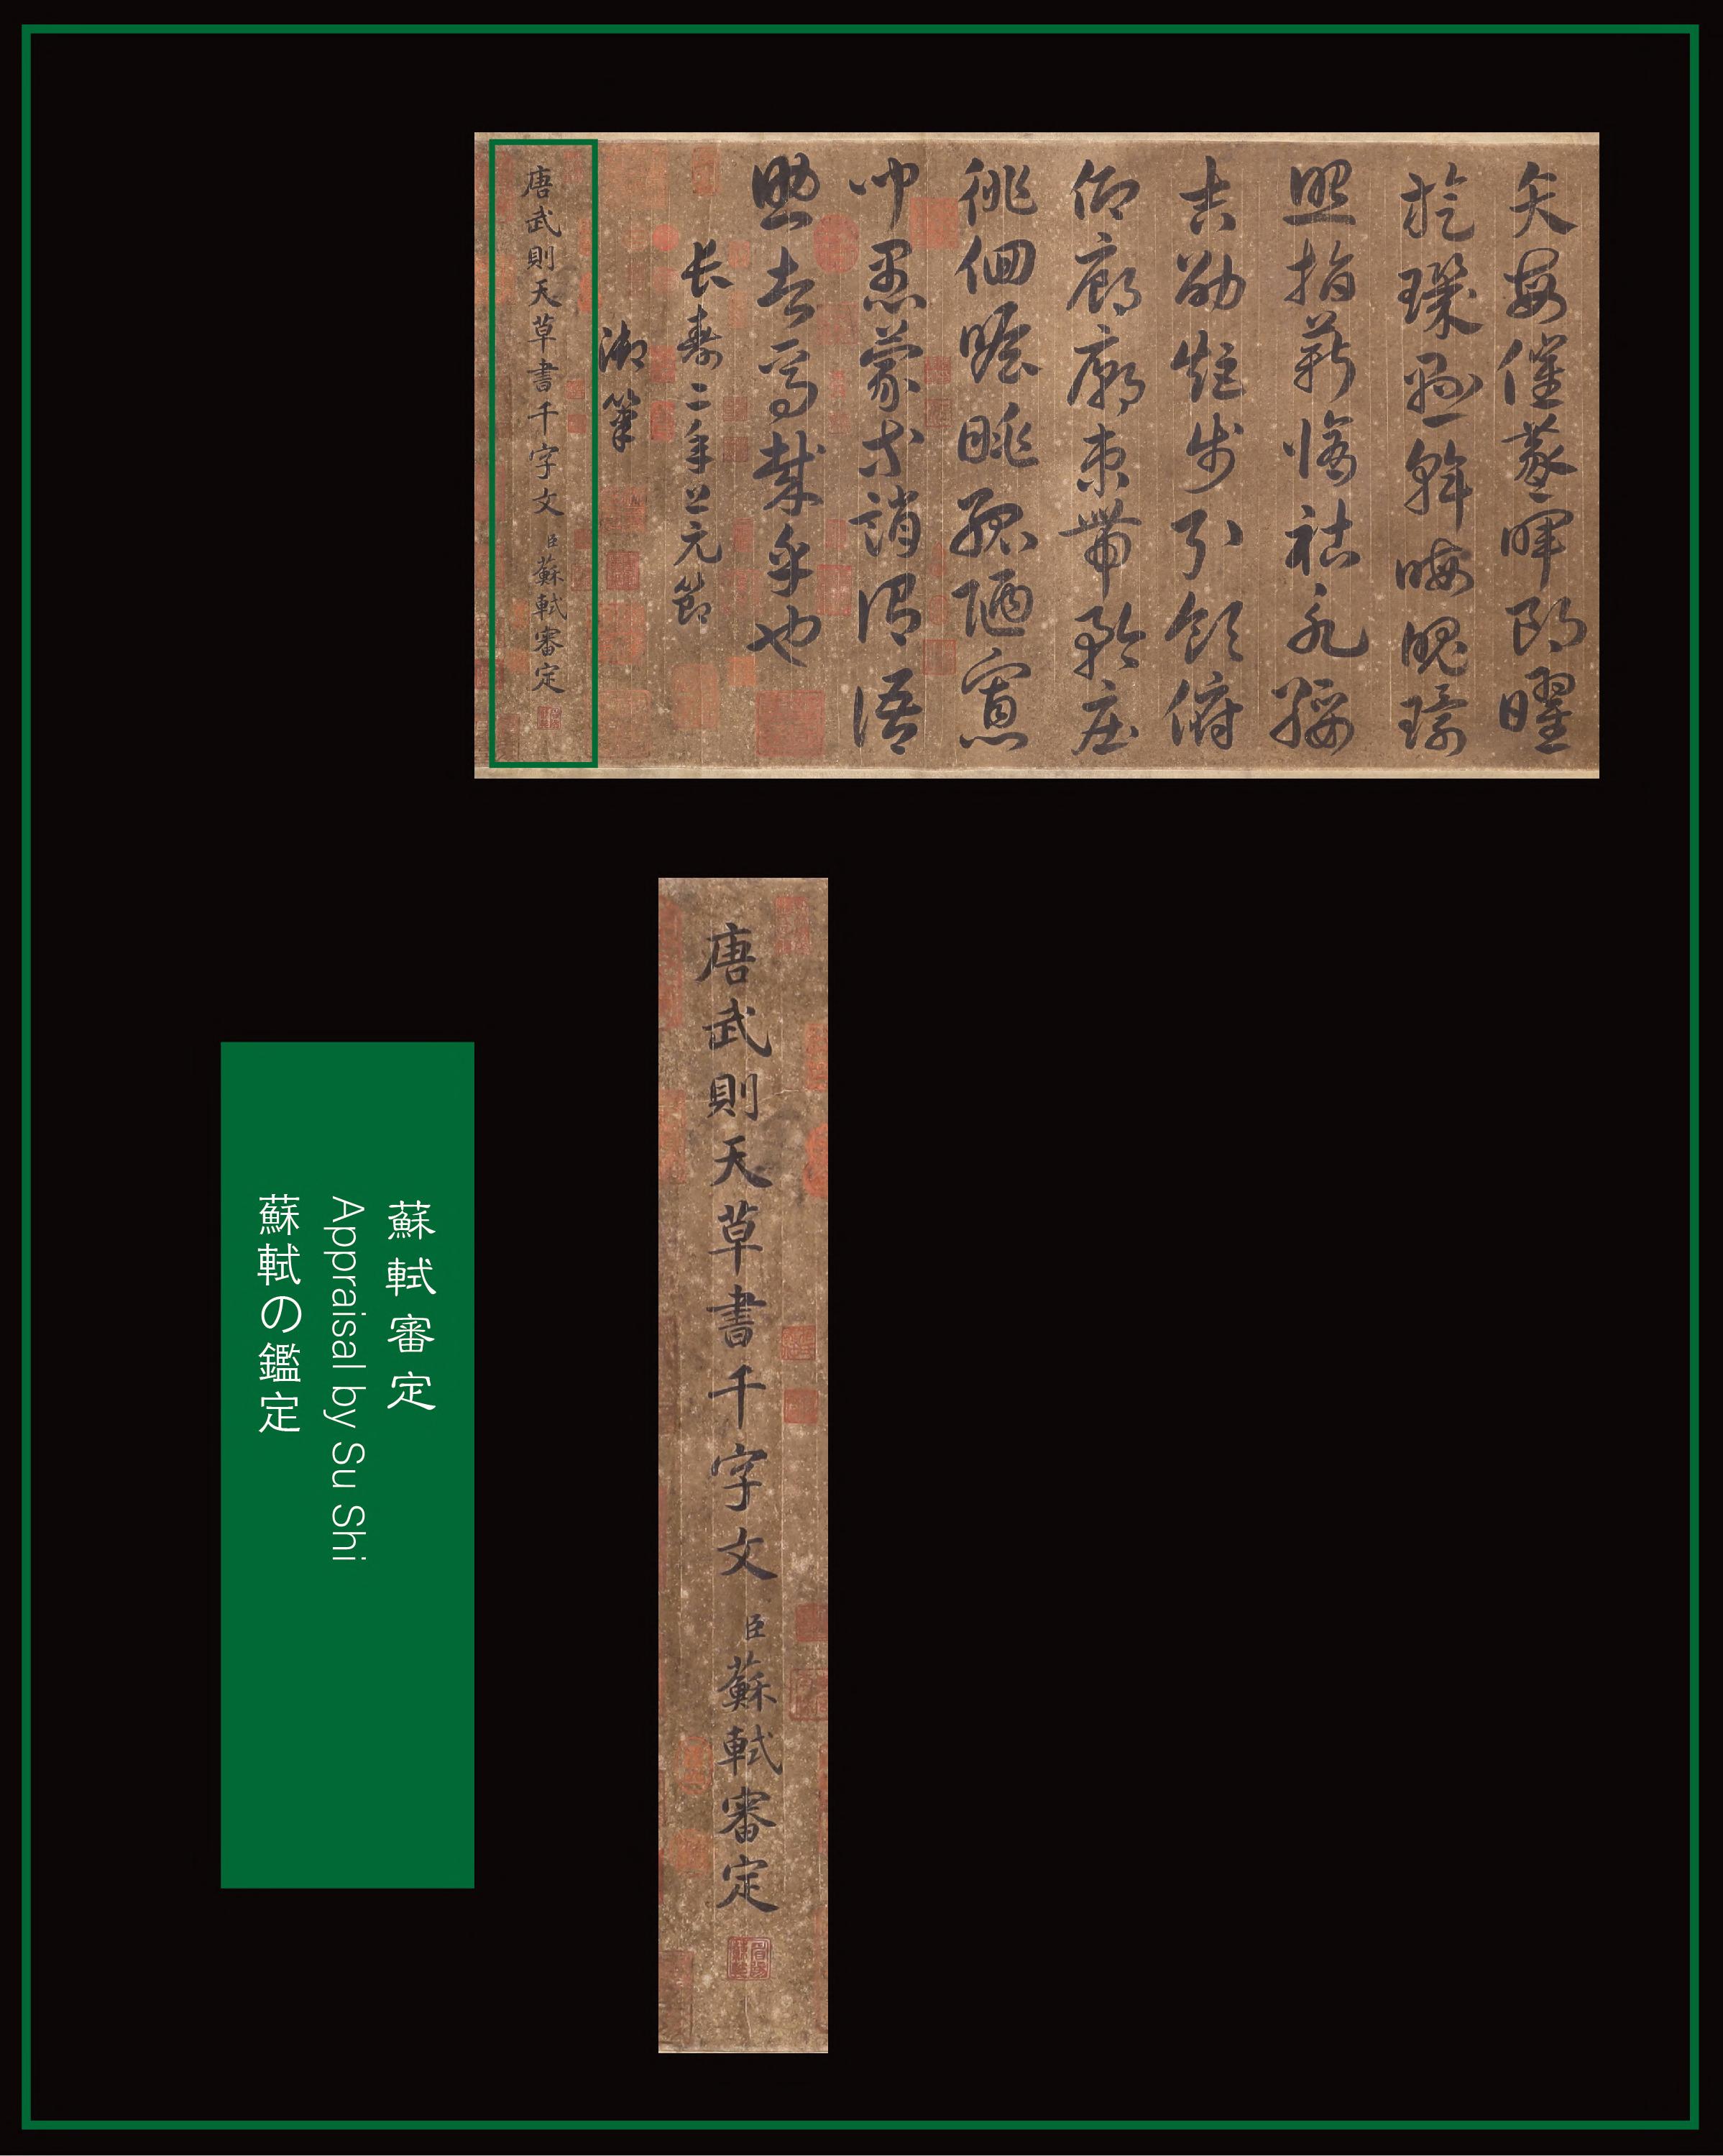 矢每催羲暉朗曜
旋璣懸斡晦魄環
照指薪修祜永綏
吉劭矩步引領俯
仰廊廟束帶矜莊
徘徊瞻眺孤陋寡
聞愚蒙等誚謂語
助者焉哉乎也
長壽二年上元節
御筆
唐武則天草書千字文 臣蘇軾審定
唐武則天草書千字文 臣蘇軾審定
眉陽蘇軾
蘇軾審定
Appraisal by Su Shi
蘇軾の鑑定